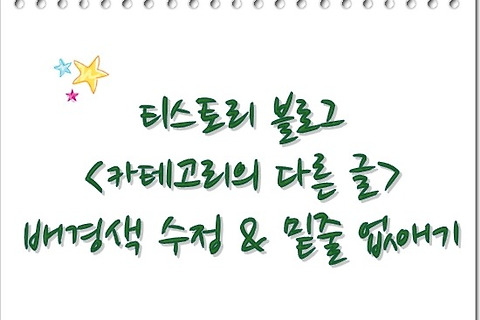 티스토리 블로그
<카테고리의 다른 글>
배경색 수정 & 밑줄 없애기